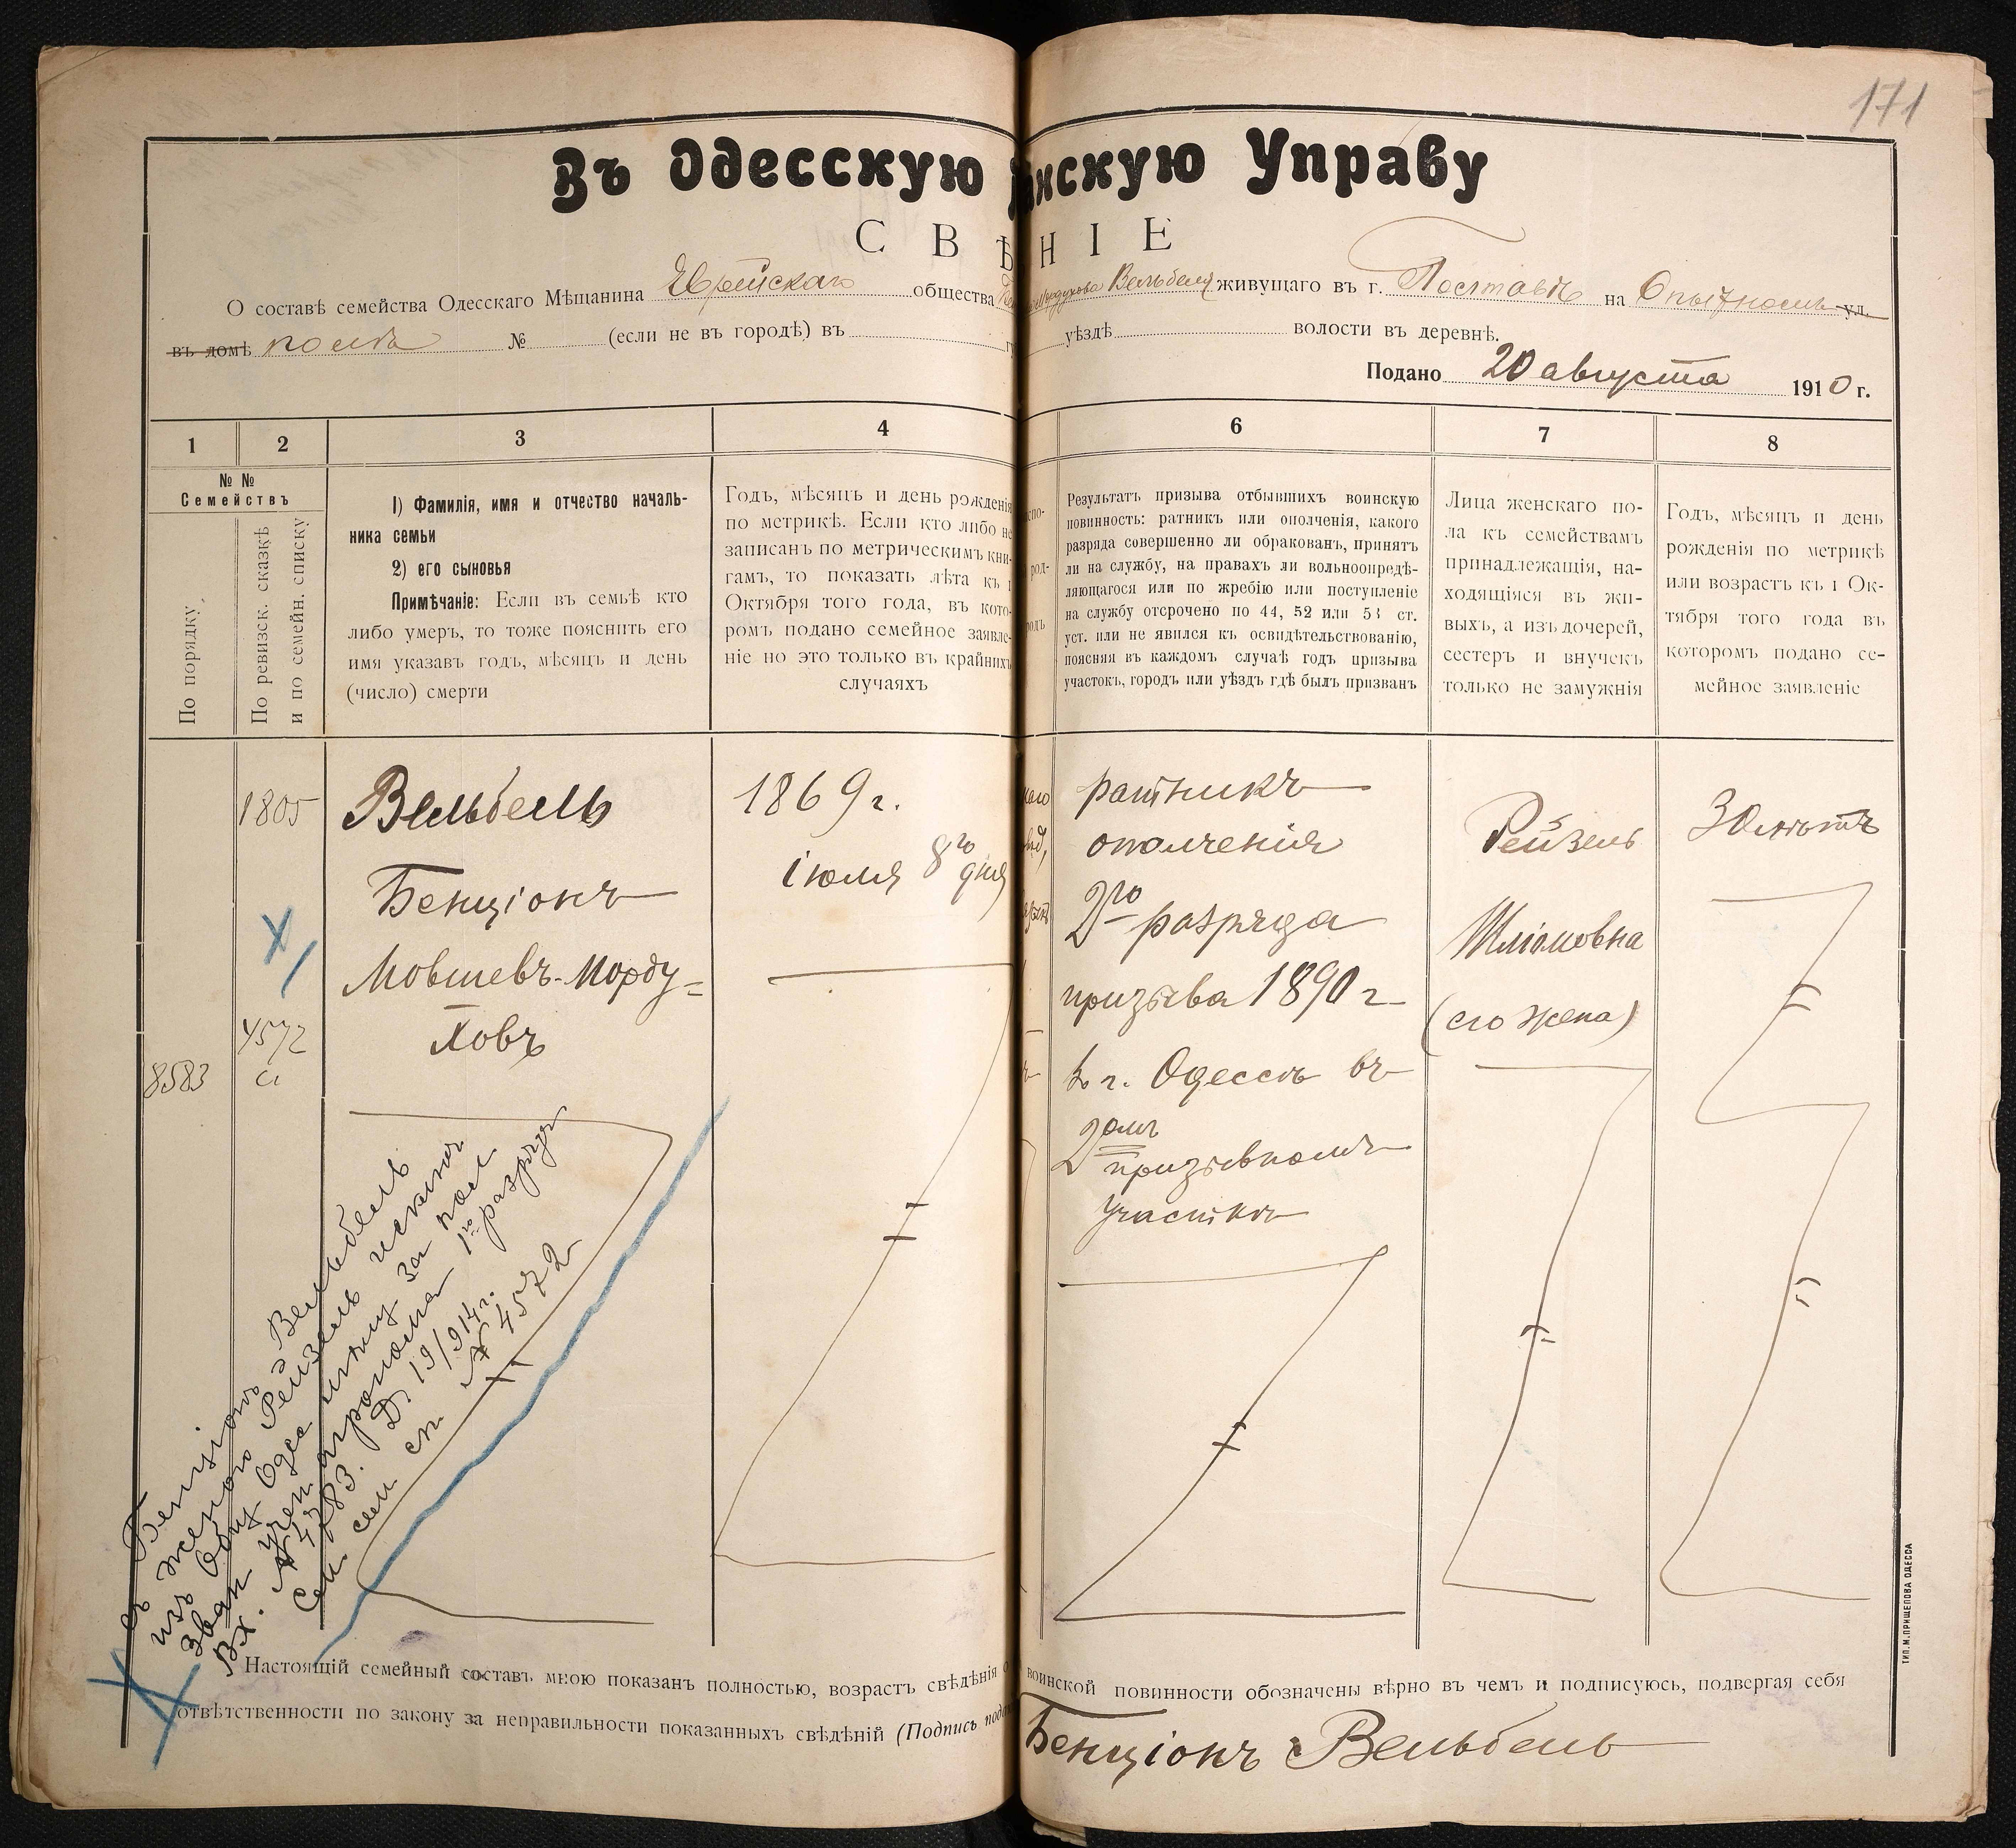 171
Въ Одесскую нскую Управу
С В Ѣ Н І Е
О составѣ семейства Одесскаго Мѣщанина Еврейскаго общества Мордухова Вельбель живущаго въ г. на Опытномъ ул.
въ домѣ полѣ № (если не въ городѣ) въ г уѣздѣ волости въ деревнѣ.
Подано 20 августа 1910 г.
1 2 3 4 6 7 8
№ №
Семействъ
По порядку,
По ревизск. сказкѣ
и по семейн. списку
1) Фамилія, имя и отчество началь-
ника семьи
2) его сыновья
Примѣчаніе: Если въ семьѣ кто
либо умеръ, то тоже пояснить его
имя указавъ годъ, мѣсяцъ и день
(число) смерти
Годъ, мѣсяцъ и день рожденія
по метрикѣ. Если кто либо не
записанъ по метрическимъ кни-
гамъ, то показать лѣта къ 1
Октября того года, въ кото-
ромъ подано семейное заявле-
ніе но это только въ крайнихъ
случаяхъ
Результатъ призыва отбывшихъ воинскую
повинность: ратникъ или ополченія, какого
разряда совершенно ли обракованъ, принятъ
ли на службу, на правахъ ли вольноопредѣ-
ляющагося или по жребію или поступленіе
на службу отсрочено по 44, 52 или 53 ст.
уст. или не явился къ освидѣтельствованію,
поясняя въ каждомъ случаѣ годъ призыва
участокъ, городъ или уѣздъ гдѣ былъ призванъ
Лица женскаго по-
ла къ семействамъ
принадлежащія, на-
ходящіяся въ жи-
выхъ, а изъ дочерей,
сестеръ и внучекъ
только не замужнія
Годъ, мѣсяцъ и день
рожденія по метрикѣ
или возрастъ къ 1 Ок-
тября того года въ
которомъ подано се-
мейное заявленіе
1805
4572
8583
Вельбель
Бенціонъ
Мовшевъ-Морду=
ховъ
1869 г.
іюля 8го дня
ратникъ
ополченія
2го разряда
призыва 1890 г
въ г. Одессѣ въ
2омъ
призывномъ
участкѣ
Рейзель
Шліомовна
(его жена)
30 лѣтъ
Бенціонъ Вельбель
съ женою Рейзель исключ
изъ Общ Одес мѣщ за пол
зван учен агронома 1го разряд
Вх. № 4783. Д. 19/914 г.
Сем сп № 4572
Настоящій семейный составъ мною показанъ полностью, возрастъ свѣдѣнія о воинской повинности обозначены вѣрно въ чемъ и подписуюсь, подвергая себя
отвѣтственности по закону за неправильности показанныхъ свѣдѣній (Подпись пода
Бенціонъ Вельбель
ТИП. М. ПРИЩЕПОВА ОДЕССА